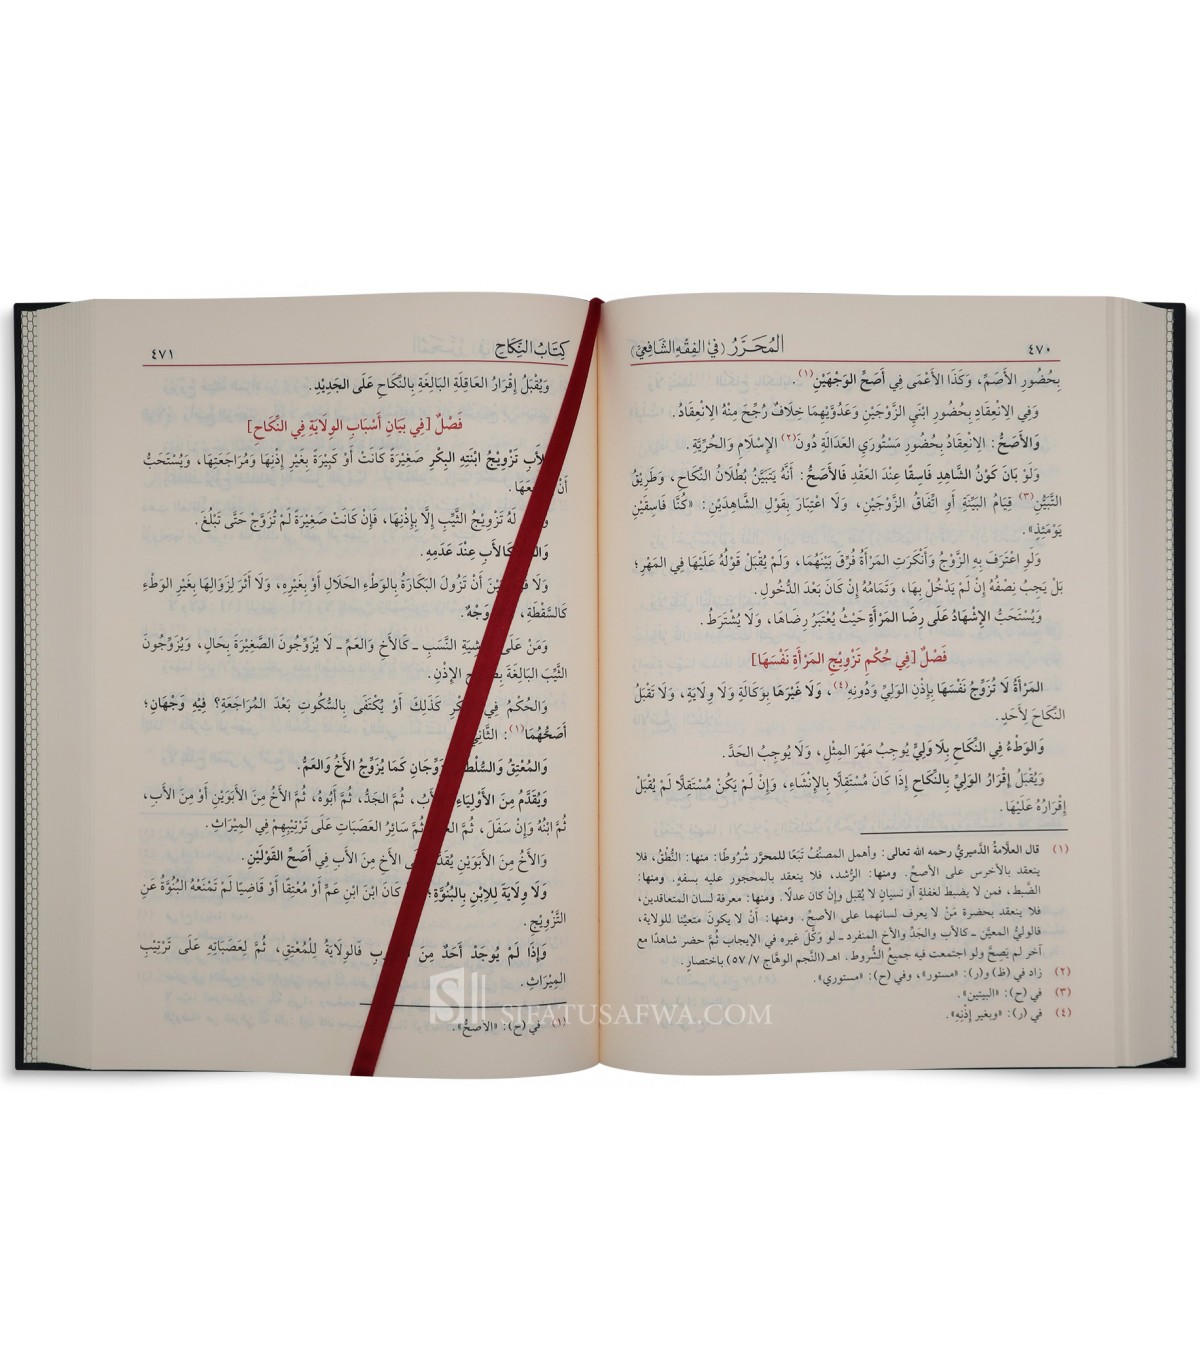 ٤٧٠ المُحَرَّرُ (في الفِقْهِ الشَّافِعِيِّ)
بِحُضُورِ الأَصَمِّ، وَكَذَا الأَعْمَى فِي أَصَحِّ الوَجْهَيْنِ(١).
وَفِي الِانْعِقَادِ بِحُضُورِ ابْنَيِ الزَّوْجَيْنِ وَعَدُوَّيْهِمَا خِلَافٌ رُجِّحَ مِنْهُ الِانْعِقَادُ.
وَالأَصَحُّ: الِانْعِقَادُ بِحُضُورِ مَسْتُورَيِ العَدَالَةِ دُونَ(٢) الإِسْلَامِ وَالحُرِّيَّةِ.
وَلَوْ بَانَ كَوْنُ الشَّاهِدِ فَاسِقًا عِنْدَ العَقْدِ فَالأَصَحُّ: أَنَّهُ يَتَبَيَّنُ بُطْلَانُ النِّكَاحِ، وَطَرِيقُ
التَّبَيُّنِ(٣) قِيَامُ البَيِّنَةِ أَوِ اتِّفَاقُ الزَّوْجَيْنِ، وَلَا اعْتِبَارَ بِقَوْلِ الشَّاهِدَيْنِ: «كُنَّا فَاسِقَيْنِ
يَوْمَئِذٍ».
وَلَوِ اعْتَرَفَ بِهِ الزَّوْجُ وَأَنْكَرَتِ المَرْأَةُ فُرِّقَ بَيْنَهُمَا، وَلَمْ يُقْبَلْ قَوْلُهُ عَلَيْهَا فِي المَهْرِ؛
بَلْ يَجِبُ نِصْفُهُ إِنْ لَمْ يَدْخُلْ بِهَا، وَتَمَامُهُ إِنْ كَانَ بَعْدَ الدُّخُولِ.
وَيُسْتَحَبُّ الإِشْهَادُ عَلَى رِضَا المَرْأَةِ حَيْثُ يُعْتَبَرُ رِضَاهَا، وَلَا يُشْتَرَطُ.
فَصْلٌ [فِي حُكْمِ تَزْوِيجِ المَرْأَةِ نَفْسَهَا]
المَرْأَةُ لَا تُزَوِّجُ نَفْسَهَا بِإِذْنِ الوَلِيِّ وَدُونِهِ(٤)، وَلَا غَيْرَهَا بِوَكَالَةٍ وَلَا وِلَايَةٍ، وَلَا تَقْبَلُ
النِّكَاحَ لِأَحَدٍ.
وَالوَطْءُ فِي النِّكَاحِ بِلَا وَلِيٍّ يُوجِبُ مَهْرَ المِثْلِ، وَلَا يُوجِبُ الحَدَّ.
وَيُقْبَلُ إِقْرَارُ الوَلِيِّ بِالنِّكَاحِ إِذَا كَانَ مُسْتَقِلًّا بِالإِنْشَاءِ، وَإِنْ لَمْ يَكُنْ مُسْتَقِلًّا لَمْ يُقْبَلْ
إِقْرَارُهُ عَلَيْهَا.
(١) قال العلَّامةُ الدَّميريُّ رحمه الله تعالى: وأهمل المصنِّفُ تَبَعًا للمحرَّر شُروطًا: منها: النُّطْقُ، فلا
ينعقد بالأخرس على الأصحِّ. ومنها: الرُّشد، فلا ينعقد بالمحجور عليه بسفهٍ. ومنها:
الضَّبط، فمن لا يضبط لغفلةٍ أو نسيانٍ لا يُقبل وإن كان عدلًا. ومنها: معرفة لسان المتعاقدين،
فلا ينعقد بحضرة مَنْ لا يعرف لسانهما على الأصحِّ. ومنها: أن لا يكونَ متعيِّنًا للولاية،
فالوليُّ المعيَّن ـ كالأب والجَدِّ والأخ المنفرد ـ لو وَكَّلَ غيره في الإيجاب ثمَّ حضر شاهدًا مع
آخر لم يَصِحَّ ولو اجتمعت فيه جميعُ الشُّروط. اهـ (النَّجم الوهَّاج ٥٧/٧) باختصار.
(٢) زاد في (ظ) و(ر): «مستور»، وفي (ح): «مستوري».
(٣) في (ح): «البيتين».
(٤) في (ر): «وبغير إِذْنِهِ».
كِتَابُ النِّكَاحِ ٤٧١
وَيُقْبَلُ إِقْرَارُ العَاقِلَةِ البَالِغَةِ بِالنِّكَاحِ عَلَى الجَدِيدِ.
فَصْلٌ [فِي بَيَانِ أَسْبَابِ الوِلَايَةِ فِي النِّكَاحِ]
تَزْوِيجُ ابْنَتِهِ البِكْرِ صَغِيرَةً كَانَتْ أَوْ كَبِيرَةً بِغَيْرِ إِذْنِهَا وَمُرَاجَعَتِهَا، وَيُسْتَحَبُّ
أَنْ
لَهُ تَزْوِيجُ الثَّيِّبِ إِلَّا بِإِذْنِهَا، فَإِنْ كَانَتْ صَغِيرَةً لَمْ تُزَوَّجْ حَتَّى تَبْلُغَ.
كَالأَبِ عِنْدَ عَدَمِهِ.
وَلَا أَنْ تَزُولَ البَكَارَةُ بِالوَطْءِ الحَلَالِ أَوْ بِغَيْرِهِ، وَلَا أَثَرَ لِزَوَالِهَا بِغَيْرِ الوَطْءِ
كَالسَّقْطَةِ، وَجْهٌ.
وَمَنْ عَلَى النَّسَبِ ـ كَالأَخِ وَالعَمِّ ـ لَا يُزَوِّجُونَ الصَّغِيرَةَ بِحَالٍ، وَيُزَوِّجُونَ
الثَّيِّبَ البَالِغَةَ الإِذْنِ.
وَالحُكْمُ فِي كَذَلِكَ أَوْ يُكْتَفَى بِالسُّكُوتِ بَعْدَ المُرَاجَعَةِ؟ فِيهِ وَجْهَانِ؛
أَصَحُّهُمَا(١): الثَّانِي
وَالمُعْتِقُ كَمَا يُزَوِّجُ الأَخُ وَالعَمُّ.
وَيُقَدَّمُ مِنَ الأَوْلِيَاءِ ثُمَّ الجَدُّ، ثُمَّ أَبُوهُ، ثُمَّ الأَخُ مِنَ الأَبَوَيْنِ أَوْ مِنَ الأَبِ،
ثُمَّ ابْنُهُ وَإِنْ سَفَلَ، ثُمَّ ثُمَّ سَائِرُ العَصَبَاتِ عَلَى تَرْتِيبِهِمْ فِي المِيْرَاثِ.
وَالأَخُ مِنَ الأَبَوَيْنِ الأَخِ مِنَ الأَبِ فِي أَصَحِّ القَوْلَيْنِ.
وَلَا وِلَايَةَ لِلِابْنِ بِالبُنُوَّةِ؛ كَانَ ابْنَ ابْنِ عَمٍّ أَوْ مُعْتِقًا أَوْ قَاضِيًا لَمْ تَمْنَعْهُ البُنُوَّةُ عَنِ
التَّزْوِيجِ.
وَإِذَا لَمْ يُوجَدْ أَحَدٌ مِنَ فَالوِلَايَةُ لِلْمُعْتِقِ، ثُمَّ لِعَصَبَاتِهِ عَلَى تَرْتِيبِ
المِيْرَاثِ.
(١) في (ح): «الأصحُّ».
SIFATUSAFWA.COM